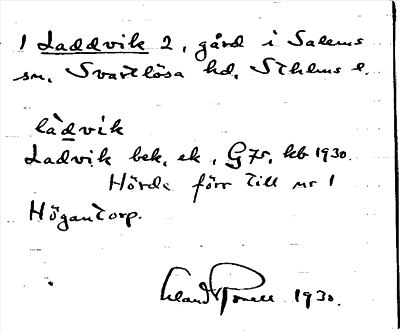 1 Laddvik 2, gård i Salems
sn, Svartlösa hd, Sthlms l.
làdvik
Ladvik bek. ek, G 75, kb 1930.
Hörde förr till nr 1
Högantorp.
1930.